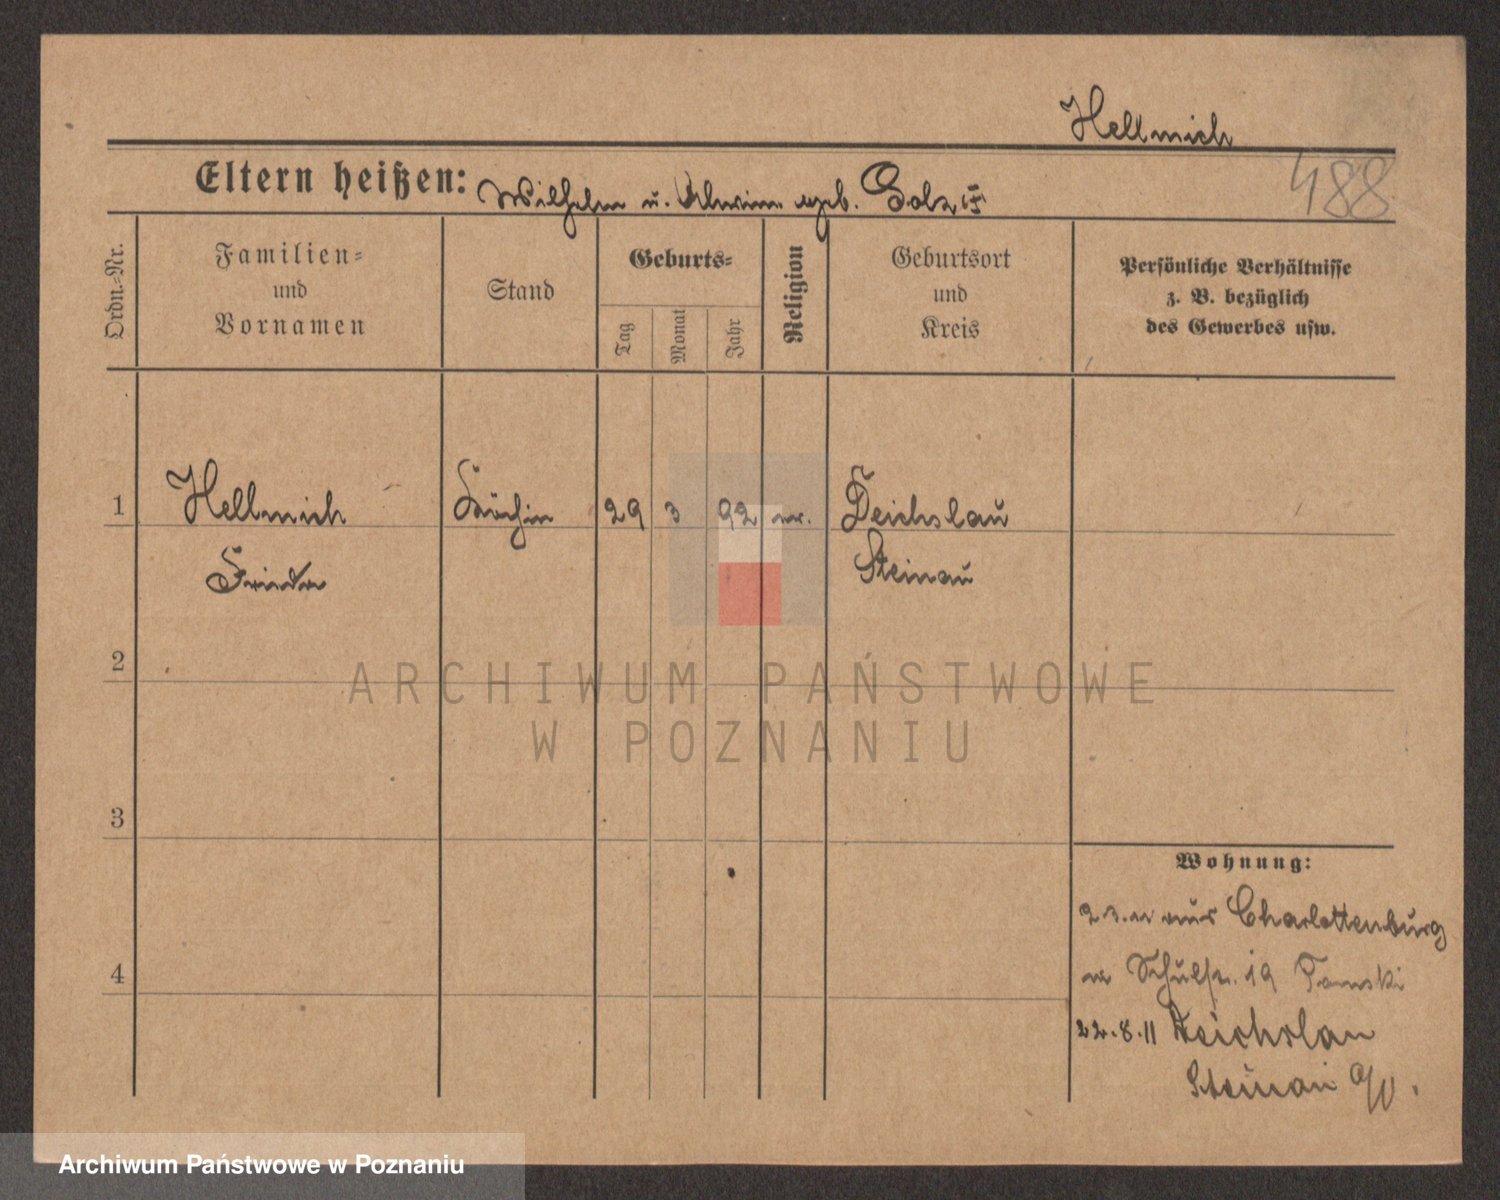 Hellmich
Eltern heißen: Wilhelm u. geb.
488
Ordn.-Nr.
Familien-
und
Vornamen
Stand
Geburts-
Tag
Monat
Jahr
Religion
Geburtsort
und
Kreis
Persönliche Verhältnisse
z. B. bezüglich
des Gewerbes usw.
1 Hellmich Köchin 29 3 92 Deichslau
Frieda Steinau
2
ARCHIWUM PAŃSTWOWE
W POZNANIU
3
4
Wohnung:
Charlottenburg
Schulstr. 19
22.8.11 Deichslau
Steinau a/O.
Archiwum Państwowe w Poznaniu